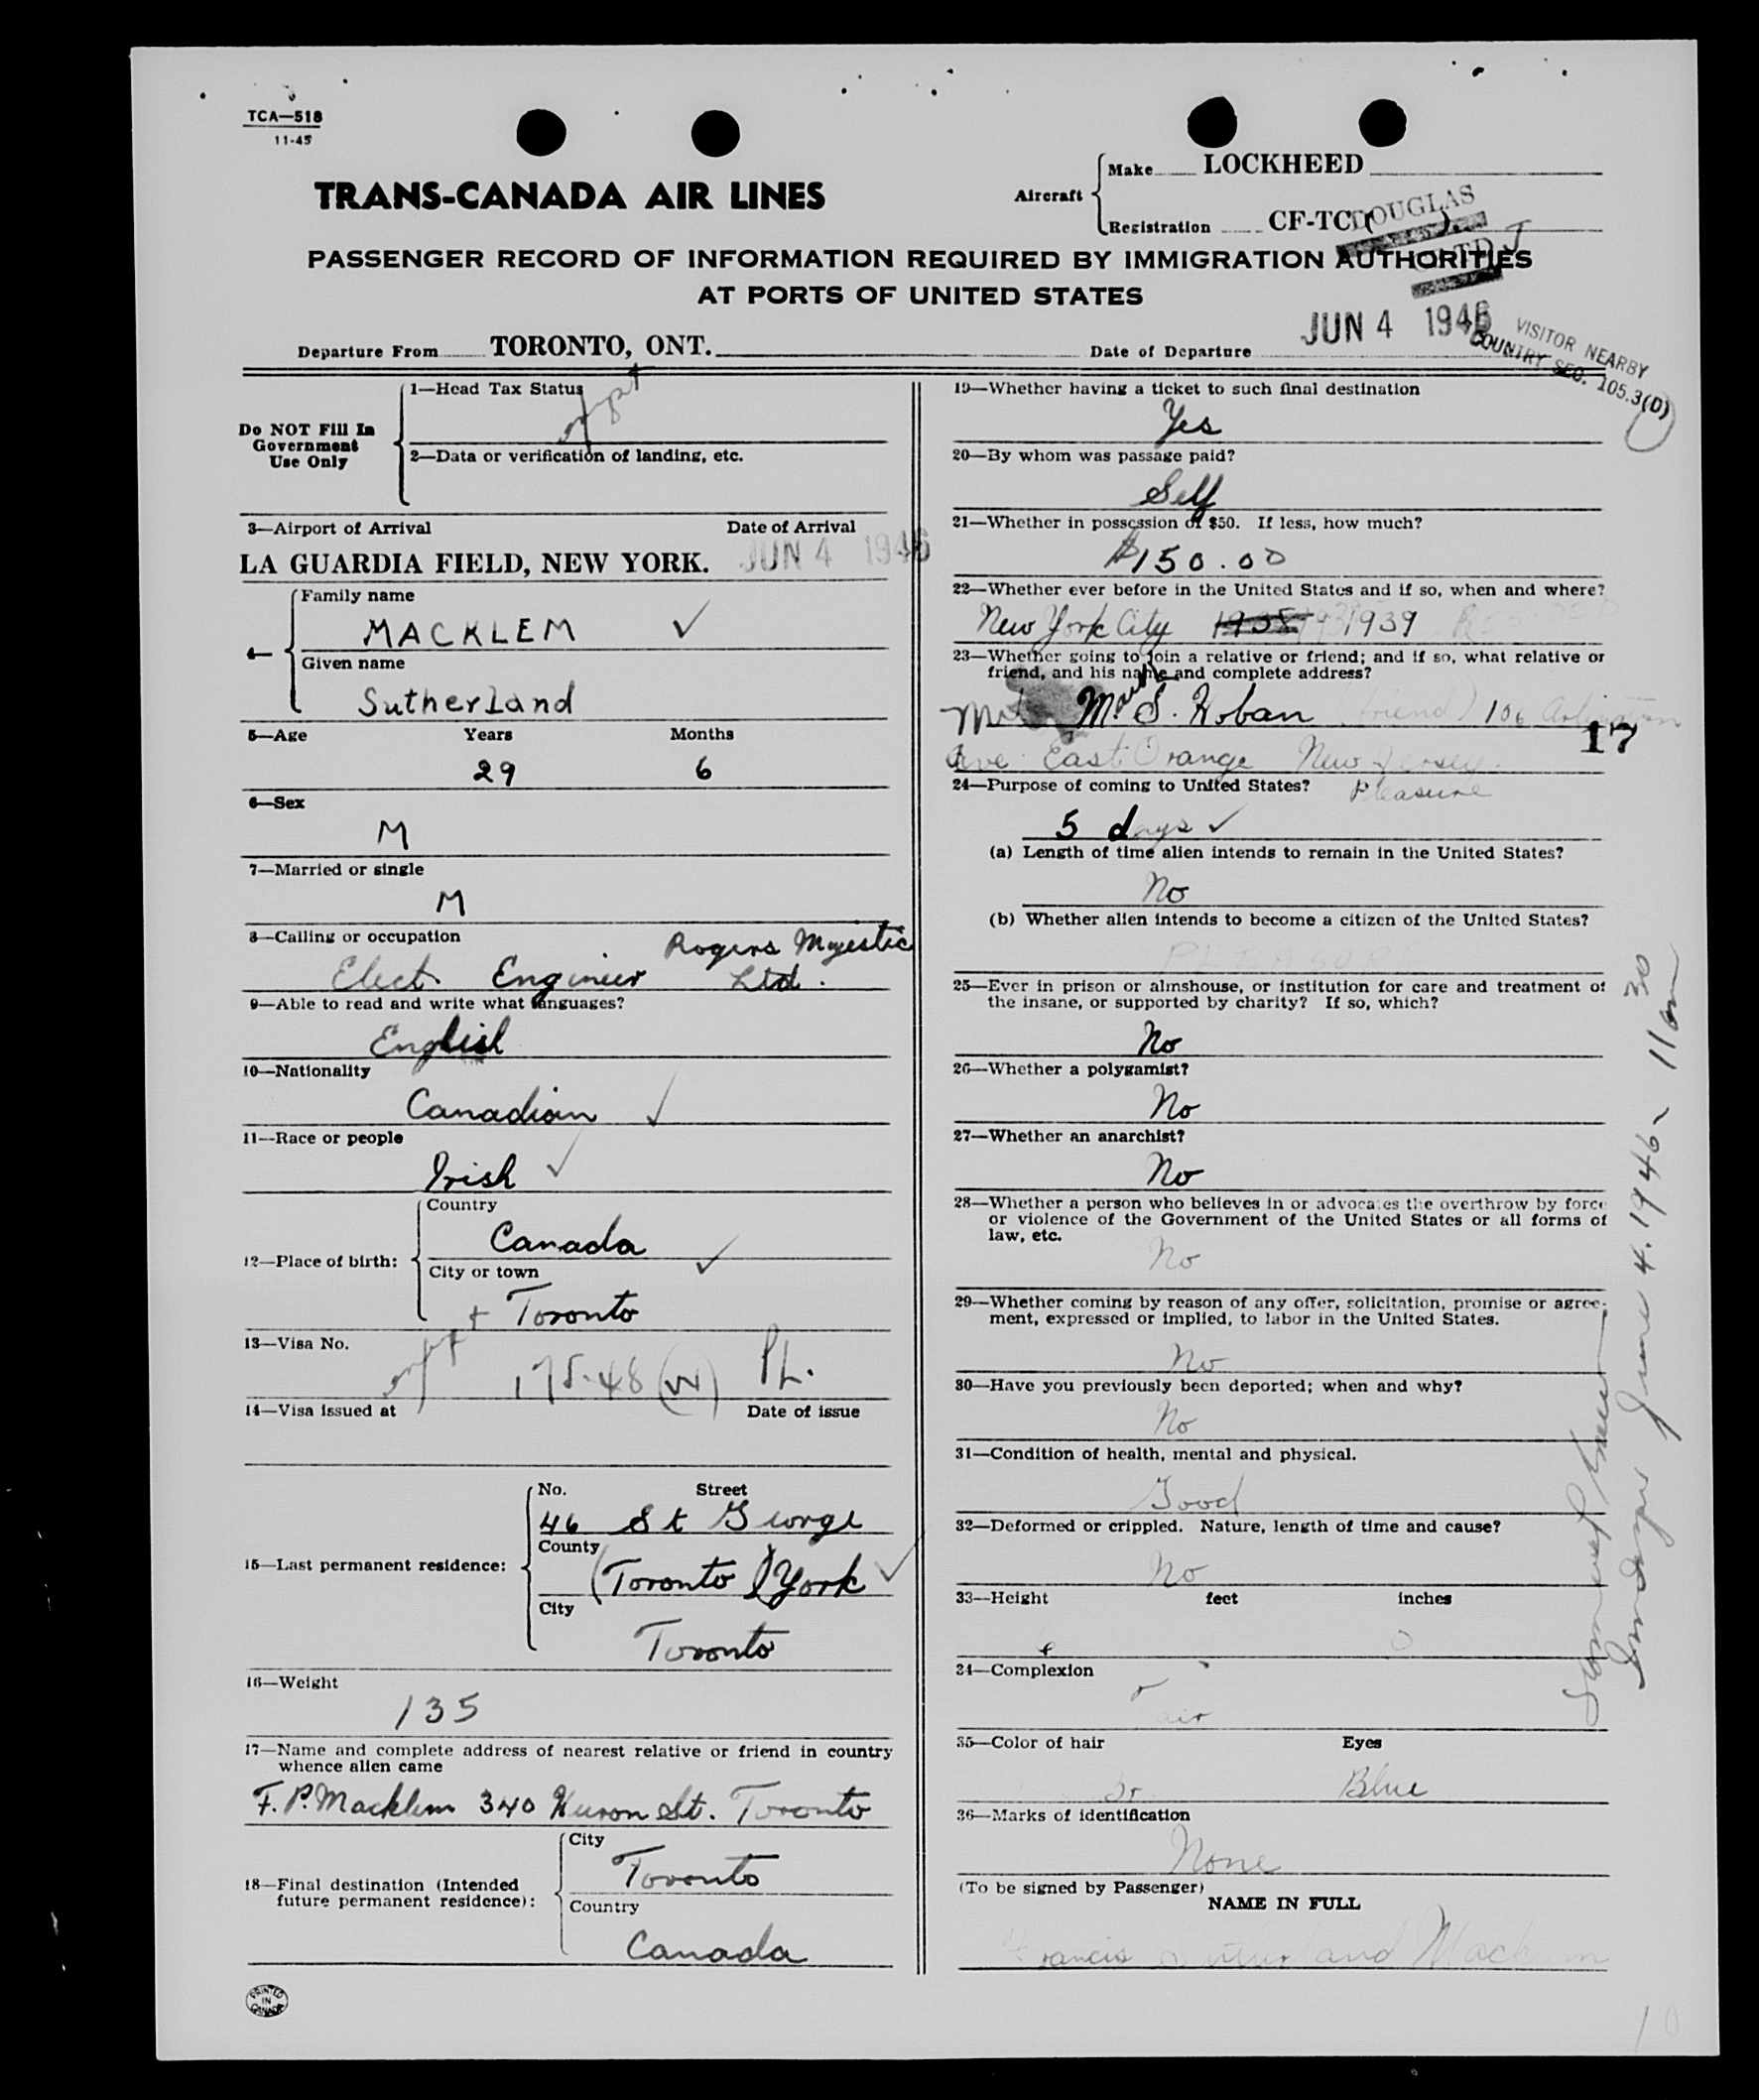 TCA—518
11-45
TRANS-CANADA AIR LINES
Aircraft
Make LOCKHEED
Registration CF-TC( ).
DOUGLAS
PASSENGER RECORD OF INFORMATION REQUIRED BY IMMIGRATION AUTHORITIES
AT PORTS OF UNITED STATES
Departure From TORONTO, ONT.
Date of Departure JUN 4 1946
VISITOR NEARBY
COUNTRY SEC. 105.3(D)
Do NOT Fill In
Government
Use Only
1—Head Tax Status
2—Data or verification of landing, etc.
3—Airport of Arrival Date of Arrival
LA GUARDIA FIELD, NEW YORK. JUN 4 1946
4—
Family name
MACKLEM
Given name
Sutherland
5—Age Years Months
29 6
6—Sex
M
7—Married or single
M
8—Calling or occupation
Rogers Majestic
Elect. Engineer Ltd.
9—Able to read and write what languages?
English
10—Nationality
Canadian
11—Race or people
Irish
12—Place of birth:
Country
Canada
City or town
Toronto
13—Visa No.
175.48 (W) PL.
14—Visa issued at Date of issue
15—Last permanent residence:
No. Street
46 St George
County
(Toronto) York
City
Toronto
16—Weight
135
17—Name and complete address of nearest relative or friend in country
whence alien came
F. P. Macklem 340 Huron St. Toronto
18—Final destination (Intended
future permanent residence):
City
Toronto
Country
Canada
PRINTED
IN
CANADA
19—Whether having a ticket to such final destination
Yes
20—By whom was passage paid?
Self
21—Whether in possession of $50. If less, how much?
$150.00
22—Whether ever before in the United States and if so, when and where?
New York City 1938 1939
23—Whether going to join a relative or friend; and if so, what relative or
friend, and his name and complete address?
Mr S. Hoban (friend) 106 Arlington
17
Ave East Orange New Jersey.
24—Purpose of coming to United States? Pleasure
5 days
(a) Length of time alien intends to remain in the United States?
No
(b) Whether alien intends to become a citizen of the United States?
PLEASURE
25—Ever in prison or almshouse, or institution for care and treatment of
the insane, or supported by charity? If so, which?
No
26—Whether a polygamist?
No
27—Whether an anarchist?
No
28—Whether a person who believes in or advocates the overthrow by force
or violence of the Government of the United States or all forms of
law, etc.
No
29—Whether coming by reason of any offer, solicitation, promise or agree-
ment, expressed or implied, to labor in the United States.
No
30—Have you previously been deported; when and why?
No
31—Condition of health, mental and physical.
Good
32—Deformed or crippled. Nature, length of time and cause?
No
33—Height feet inches
34—Complexion
air
35—Color of hair Eyes
Br Blue
36—Marks of identification
None
(To be signed by Passenger)
NAME IN FULL
Francis Sutherland Macklem
June 4. 1946 - 11 30 am
10